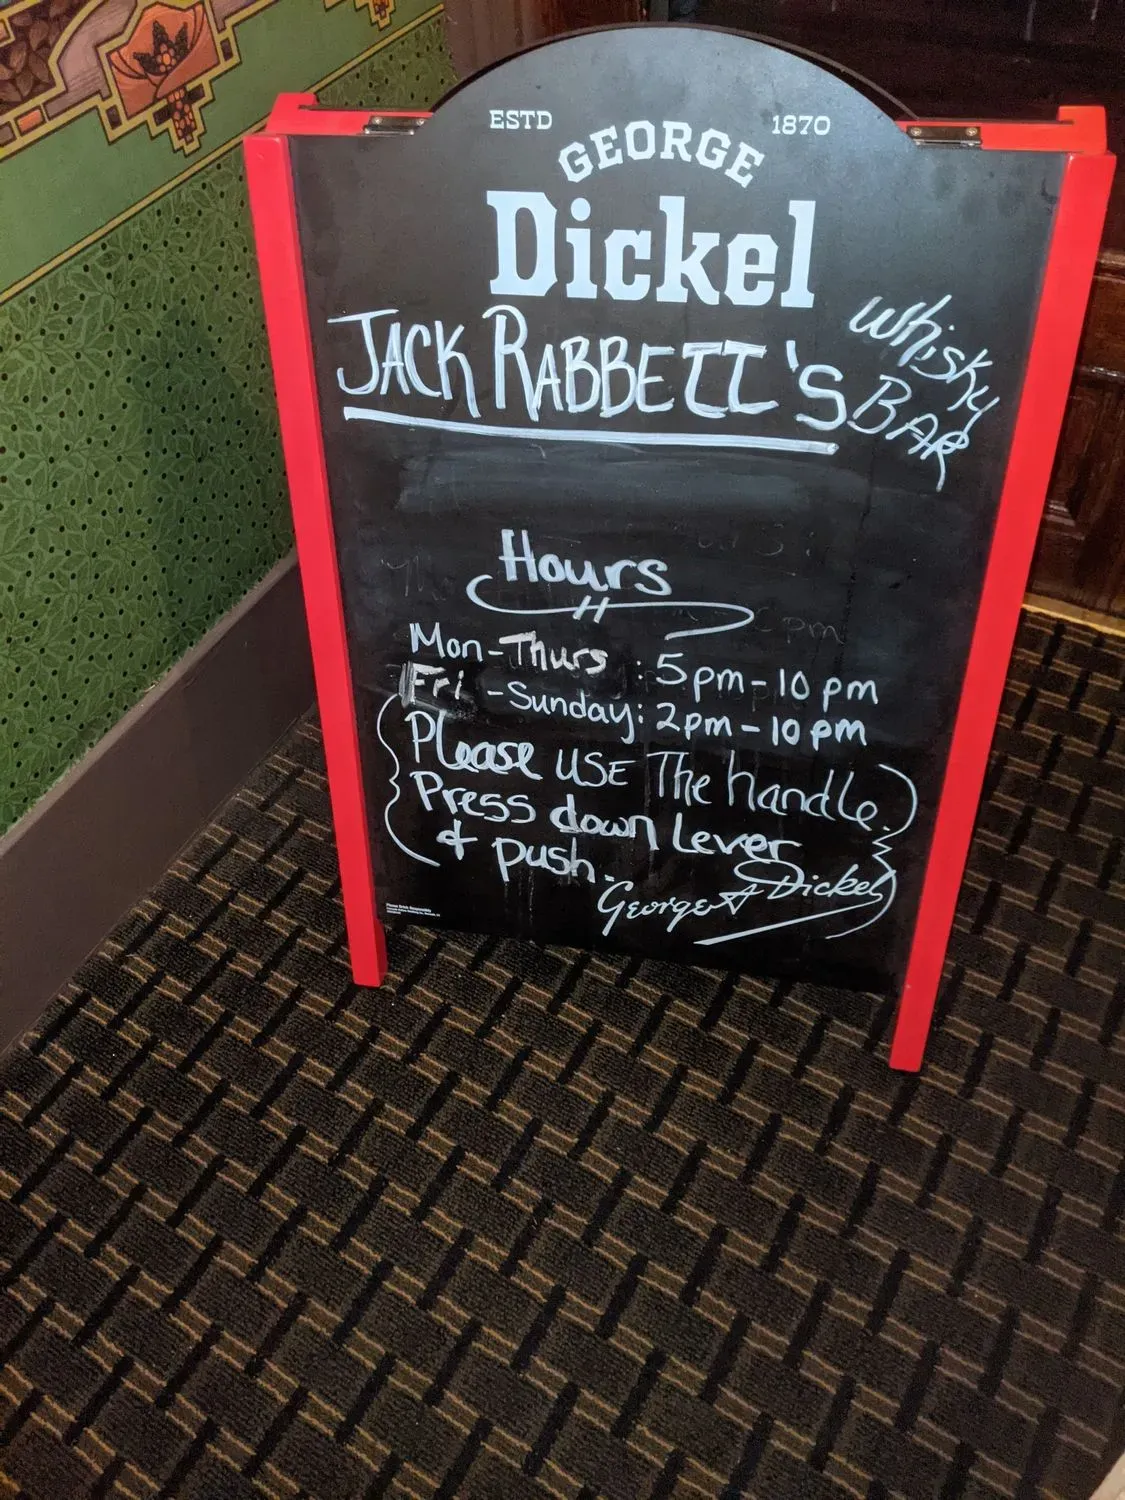 ESTD 1870
GEORGE
Dickel
JACK RABBETT'S
Whisky
BAR
Hours
Mon-Thurs : 5pm-10pm
Fri -Sunday: 2pm-10pm
Please USE The handle.
Press down Lever
& push.
George A Dickel
Please Drink Responsibly